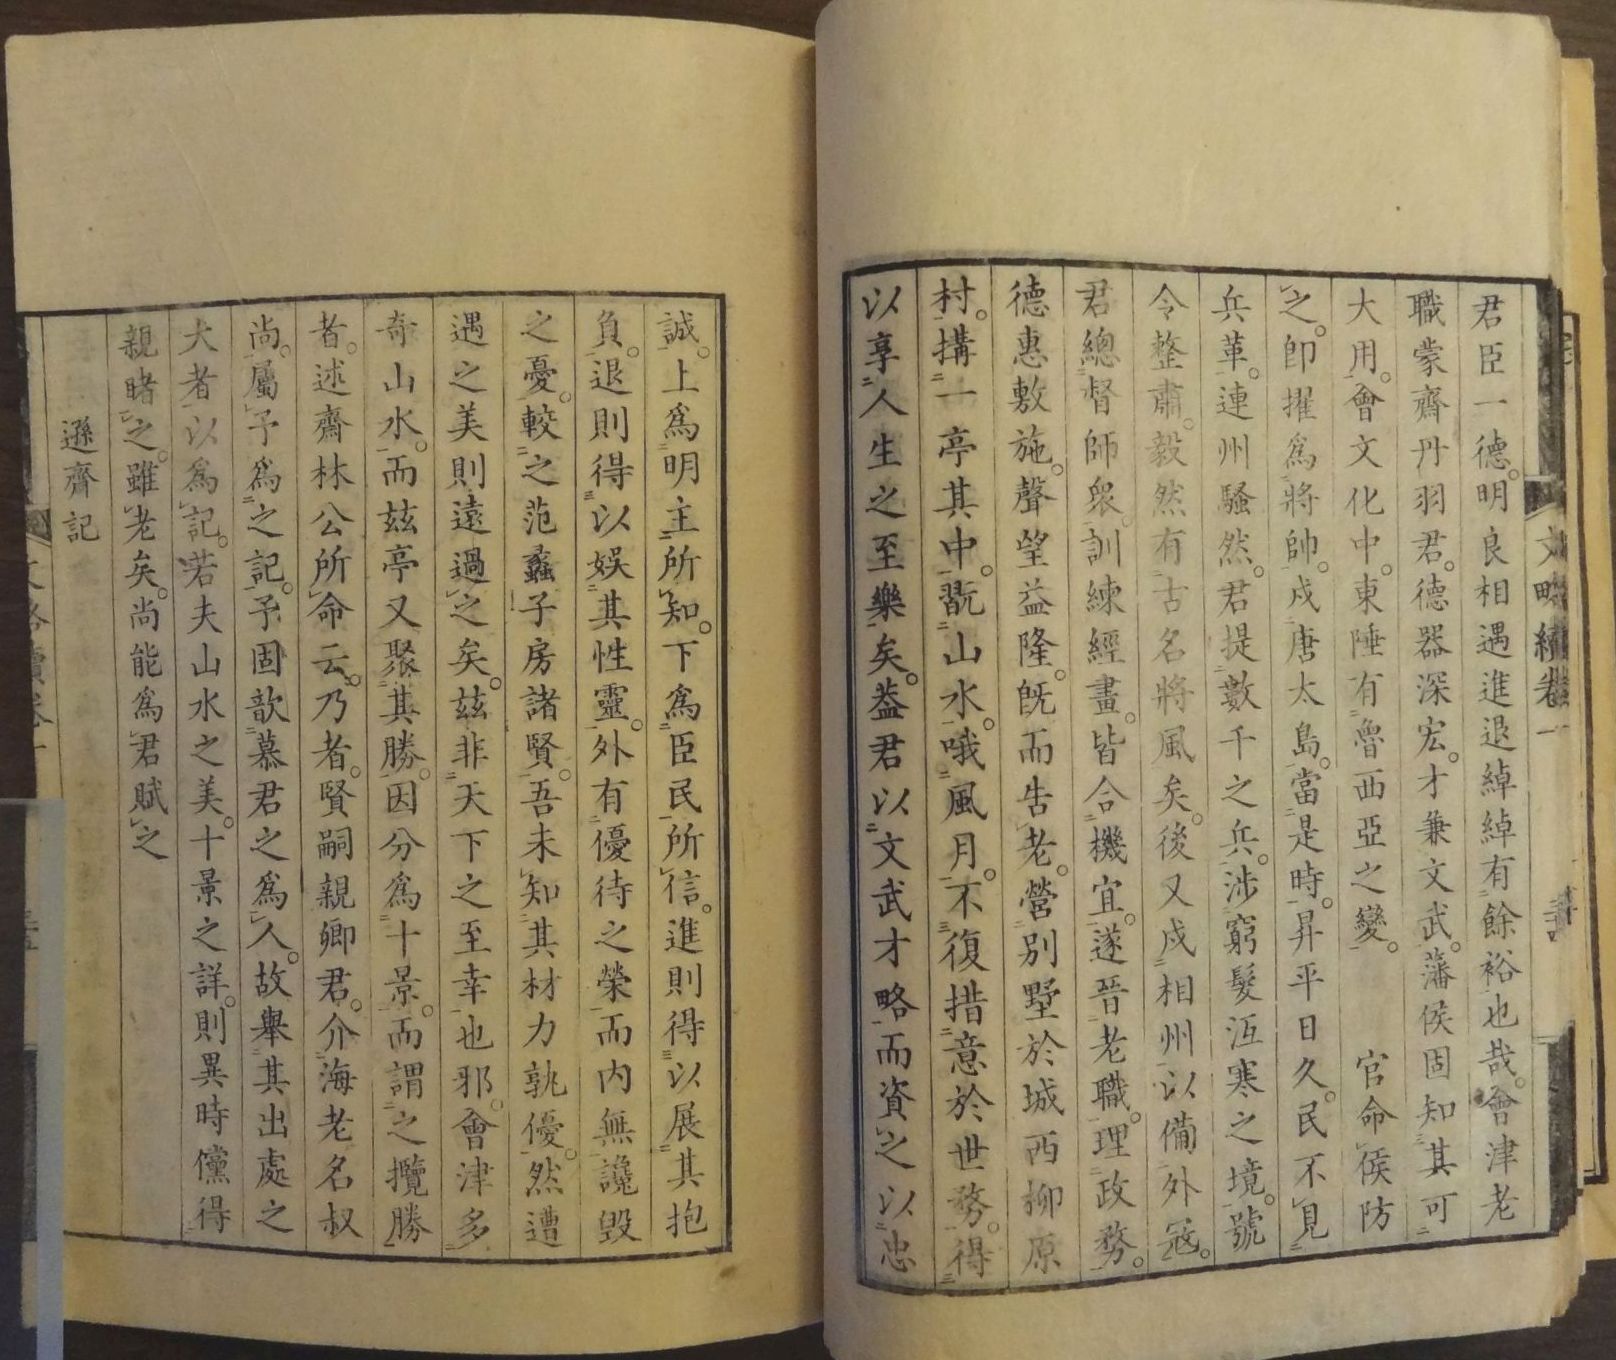 文略續卷一
君臣一德。明良相遇進退綽綽有餘裕也哉。會津老
職蒙齋丹羽君。德器深宏。才兼文武。藩侯固知其可
大用。會文化中。東陲有魯西亞之變。官命侯防
之。卽擢爲將帥。戍唐太島。當是時。昇平日久。民不見
兵革。連州騷然。君提數千之兵。涉窮髮沍寒之境。號
令整肅。毅然有古名將風矣。後又戍相州以備外冦。
君總督師衆。訓練經畫。皆合機宜。遂晉老職。理政務。
德惠敷施。聲望益隆。旣而告老。營別墅於城西柳原
村。搆一亭其中。翫山水。哦風月。不復措意於世務。得
以享人生之至樂矣。葢君以文武才略而資之以忠
誠。上爲明主所知。下爲臣民所信。進則得以展其抱
負。退則得以娛其性靈。外有優待之榮而内無讒毀
之憂。較之范蠡子房諸賢。吾未知其材力孰優。然遭
遇之美則遠過之矣。玆非天下之至幸也邪。會津多
奇山水。而玆亭又聚其勝。因分爲十景。而謂之攬勝
者。述齋林公所命云。乃者。賢嗣親卿君。介海老名叔
尚。屬予爲之記。予固歆慕君之爲人。故舉其出處之
大者以爲記。若夫山水之美。十景之詳。則異時儻得
親睹之。雖老矣。尚能爲君賦之
遜齋記